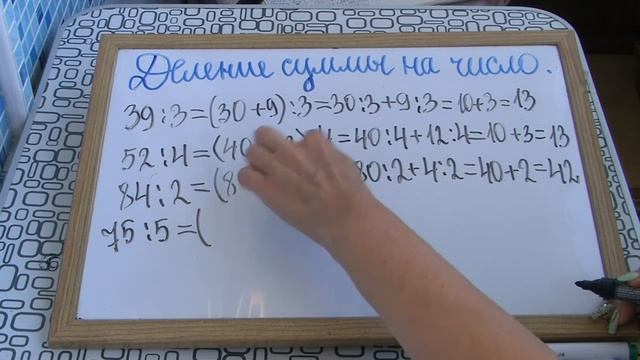 Деление суммы на число.
39:3=(30+9):3=30:3+9:3=10+3=13
52:4=(40 4=40:4+12:4=10+3=13
84:2=(8 80:2+4:2=40+2=42
75:5=(